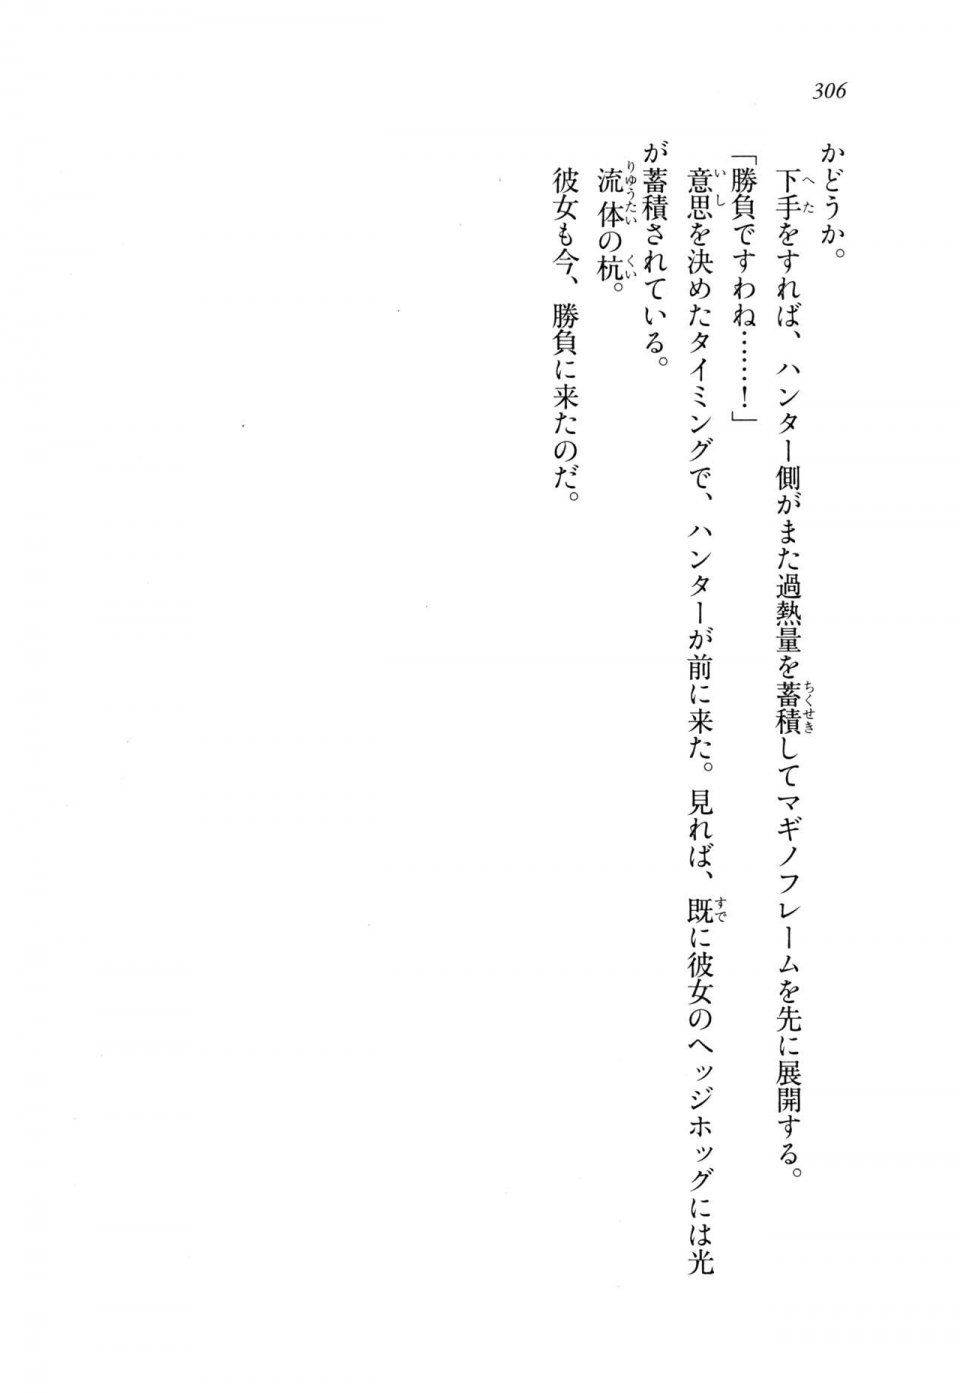 306
かどうか。
下手をすれば、ハンター側がまた過熱量を蓄積してマギノフレームを先に展開する。
「勝負ですわね……！」
意思を決めたタイミングで、ハンターが前に来た。見れば、既に彼女のヘッジホッグには光
が蓄積されている。
流体の杭。
彼女も今、勝負に来たのだ。